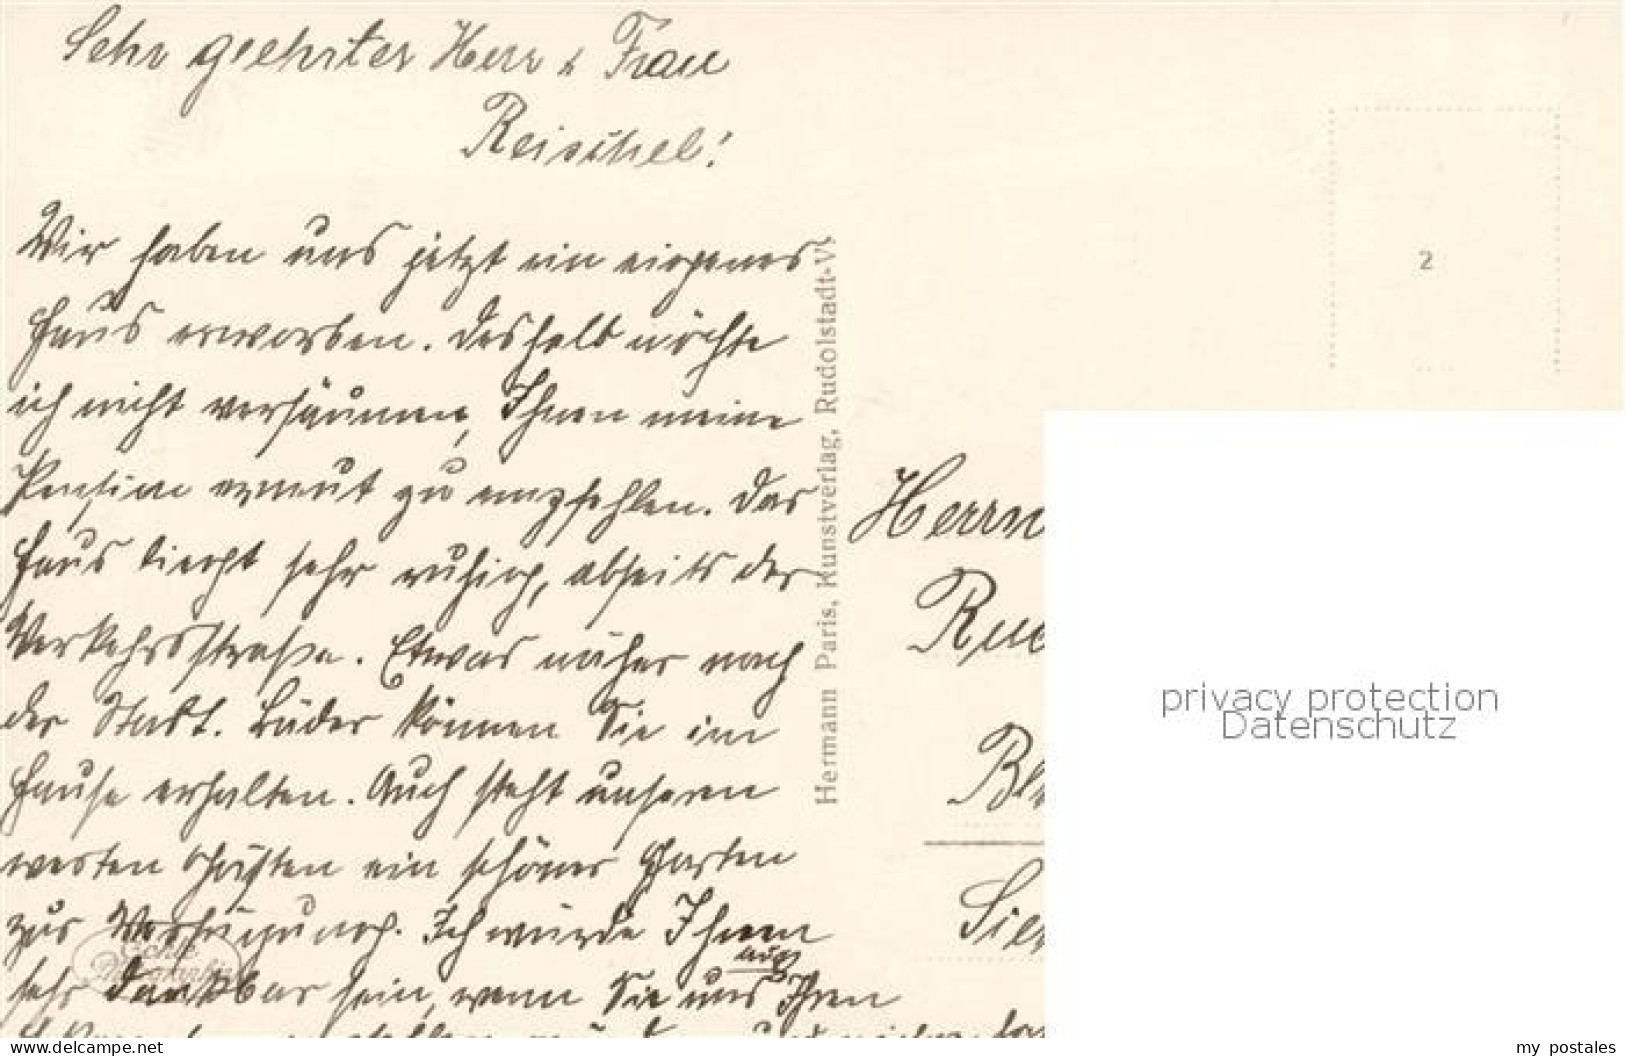 Sehr geehrter Herr & Frau
Reischel!
Wir haben uns jetzt ein eigenes
Haus erworben. Deshalb möchte
ich nicht versäumen, Ihnen meine
Pension erneut zu empfehlen. Das
Haus liegt sehr ruhig, abseits der
Verkehrsstraße. Etwas näher nach
der Stadt. Bäder können Sie im
Hause erhalten. Auch steht unseren
werten Gästen ein schöner Garten
zur Verfügung. Ich würde Ihnen
sehr dankbar sein, wenn Sie uns aus Ihren
Hermann Paris, Kunstverlag, Rudolstadt-V
Echte
2
Herrn
privacy protection
Datenschutz
www.delcampe.net
my_postales